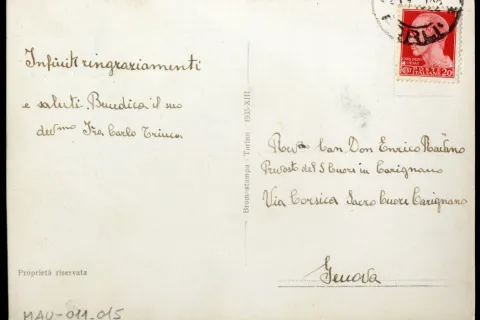 Infiniti ringraziamenti
e saluti. Benedica il suo
dev.mo Fra Carlo
Proprietà riservata
MAU-011.015
Brom-stampa - Torino - 1935-XIII
FORLI
20
Rev. Can. Don Enrico
Prevosto del S Cuore in Carignano
Via Corsica Sacro Cuore Carignano
Genova